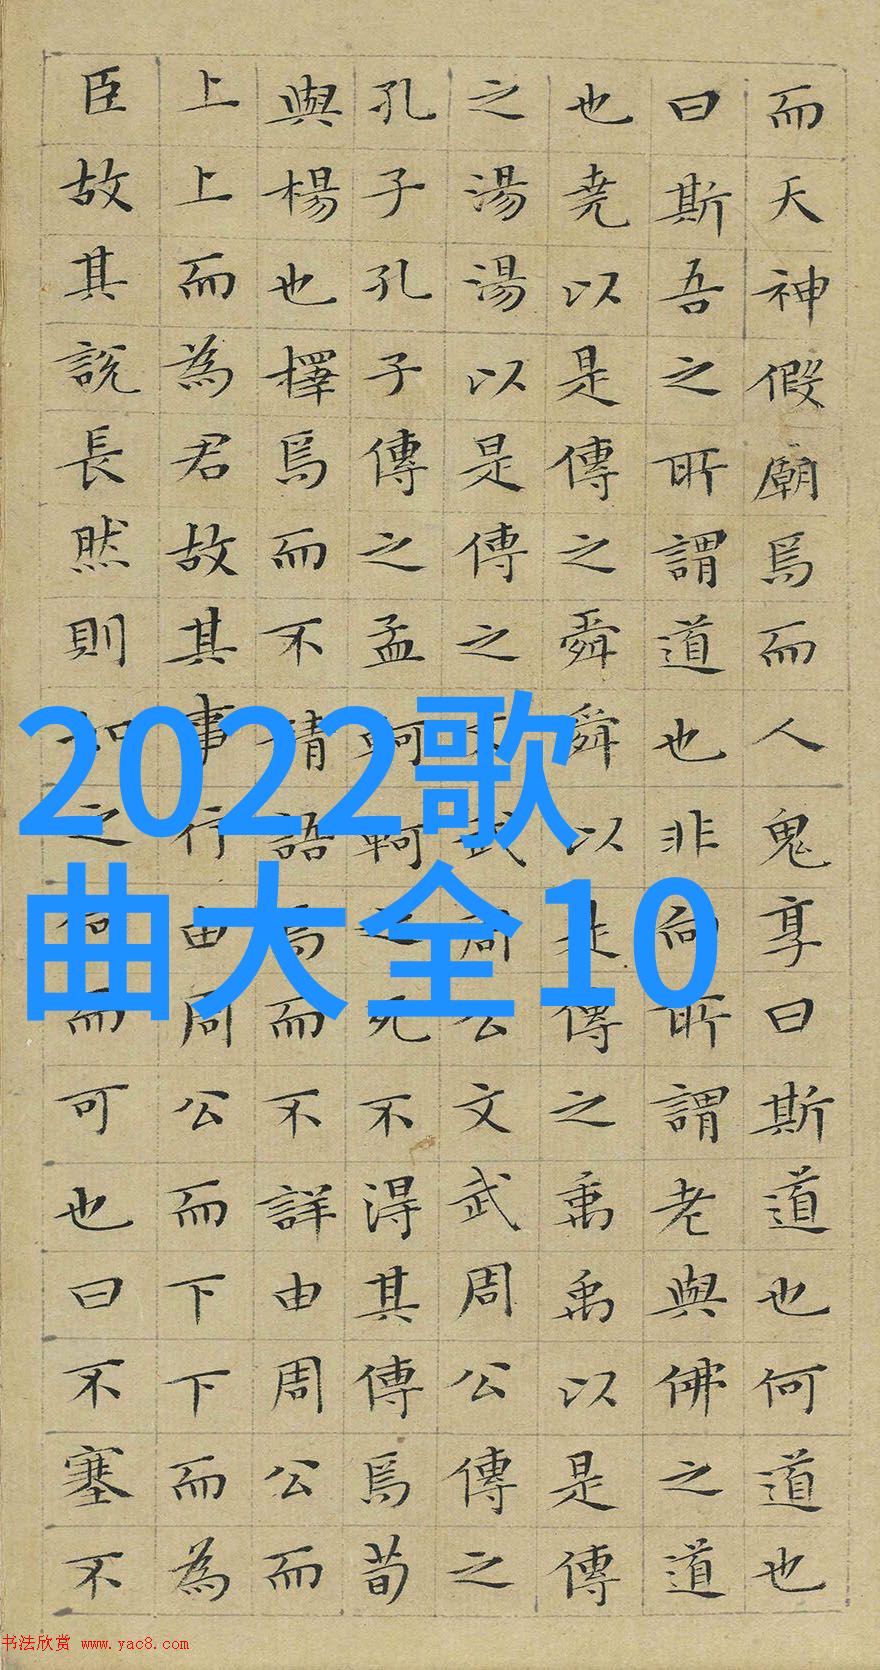 而天神假廟焉而人鬼享曰斯道也何道也
曰斯吾之所謂道也非向所謂老與佛之道
也堯以是傳之舜舜以是傳之禹禹以是傳
之湯湯以是傳之文武周公文武周公傳之
孔子孔子傳之孟軻軻之死不得其傳焉荀
與楊也擇焉而不精語焉而不詳由周公而
上上而為君故其事行由周公而下下而為
臣故其說長然則如之何而可也曰不塞不
2022歌
曲大全10
书法欣赏 www.yac8.com